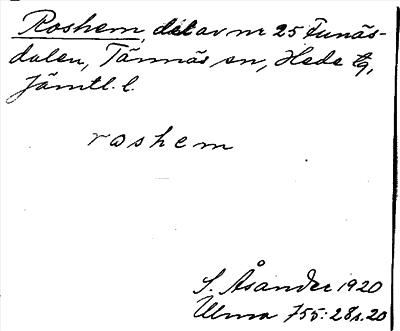 Roshem, del av nr 25 Funäs-
dalen, Tännäs sn, Hede tg,
Jämtl. l.
roshem
S. Åsander 1920
Ulma 755:28 s. 20